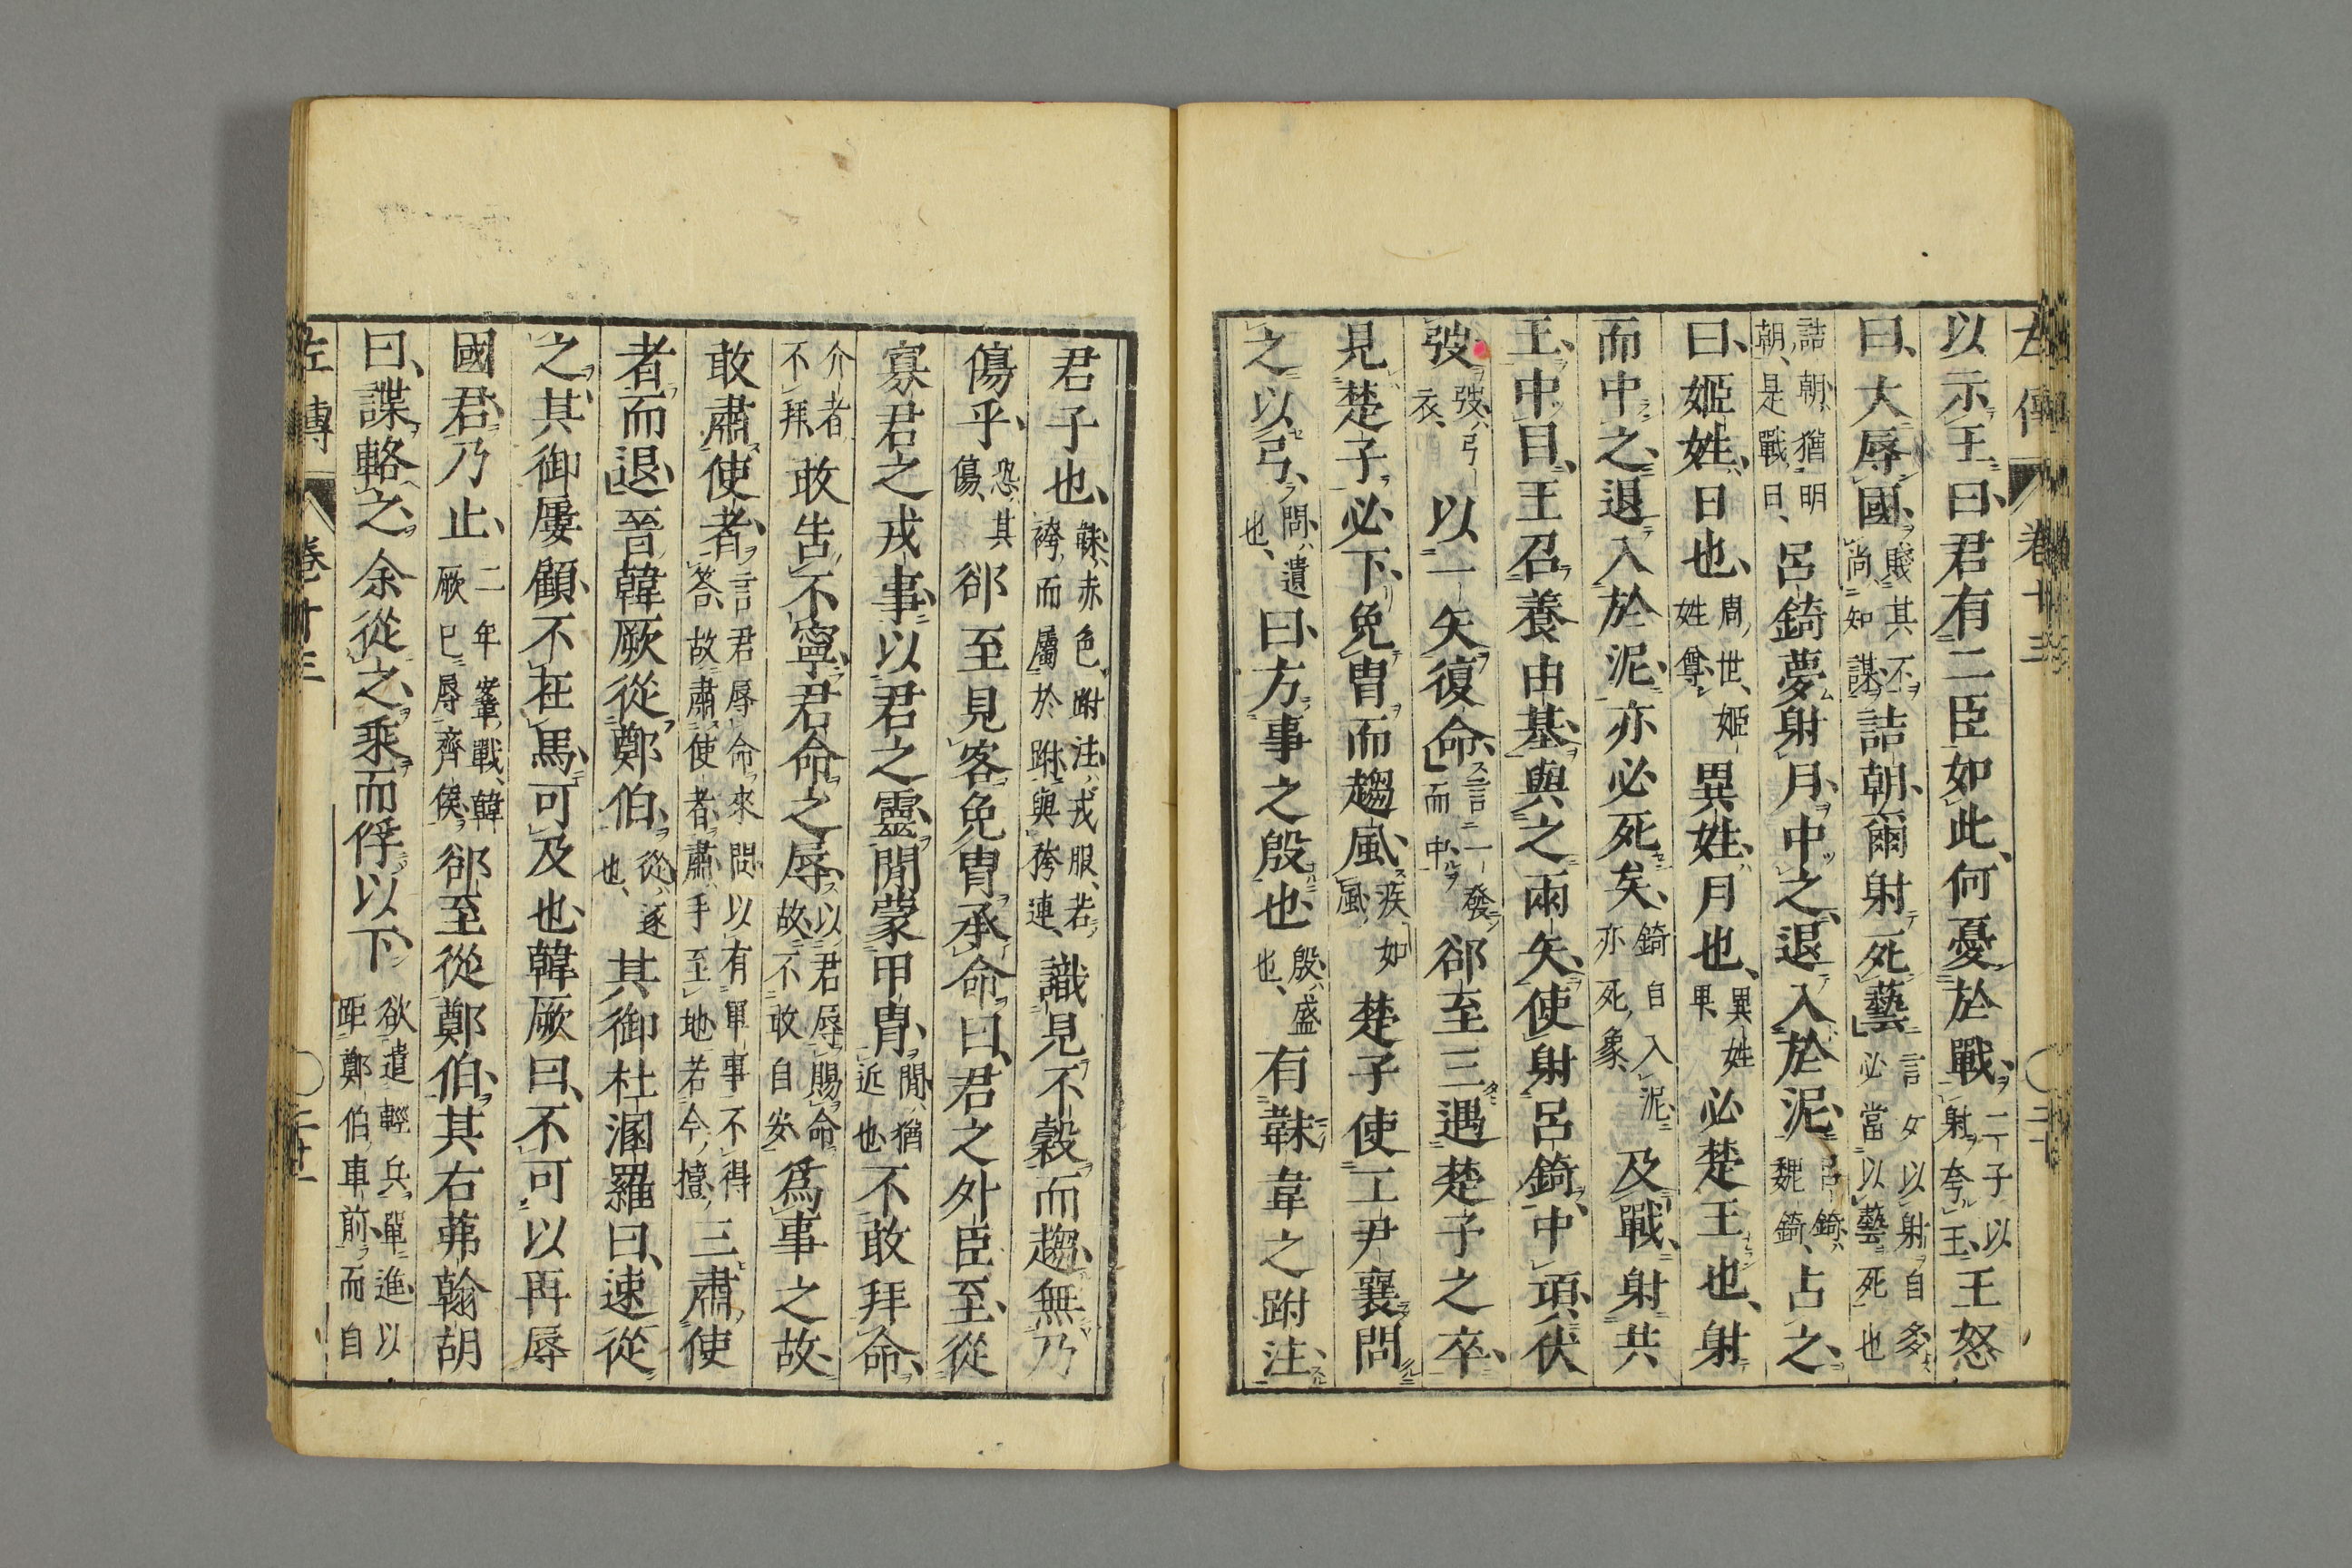 左傳 卷十三
以示王曰君有二臣如此何憂於戰二子以射夸王王怒
曰大辱國賤其不尚知謀詰朝爾射死藝言女以射自多必當以藝死也
詰朝猶明朝是戰日呂錡夢射月中之退入於泥呂錡魏錡占之
曰姬姓日也周世姬姓尊異姓月也異姓卑必楚王也射
而中之退入於泥亦必死矣錡自入泥亦死象及戰射共
王中目王召養由基與之兩矢使射呂錡中項伏
弢弢弓衣以一矢復命言一發而中郤至三遇楚子之卒
見楚子必下免冑而趨風疾如風楚子使工尹襄問
之以弓問遺也曰方事之殷也殷盛也有韎韋之跗注
君子也韎赤色跗注戎服若袴而屬於跗與袴連識見不穀而趨無乃
傷乎恐其傷郤至見客免冑承命曰君之外臣至從
寡君之戎事以君之靈閒蒙甲冑閒猶近也不敢拜命
介者不拜敢告不寧君命之辱以君辱賜命故不敢自安爲事之故
敢肅使者言君辱命來問以有軍事不得答故肅使者肅手至地若今撎三肅使
者而退晉韓厥從鄭伯從逐也其御杜溷羅曰速從
之其御屢顧不在馬可及也韓厥曰不可以再辱
國君乃止二年鞌戰韓厥已辱齊侯郤至從鄭伯其右茀翰胡
曰諜輅之余從之乘而俘以下欲遣輕兵單進以距鄭伯車前而自
左傳 卷十三